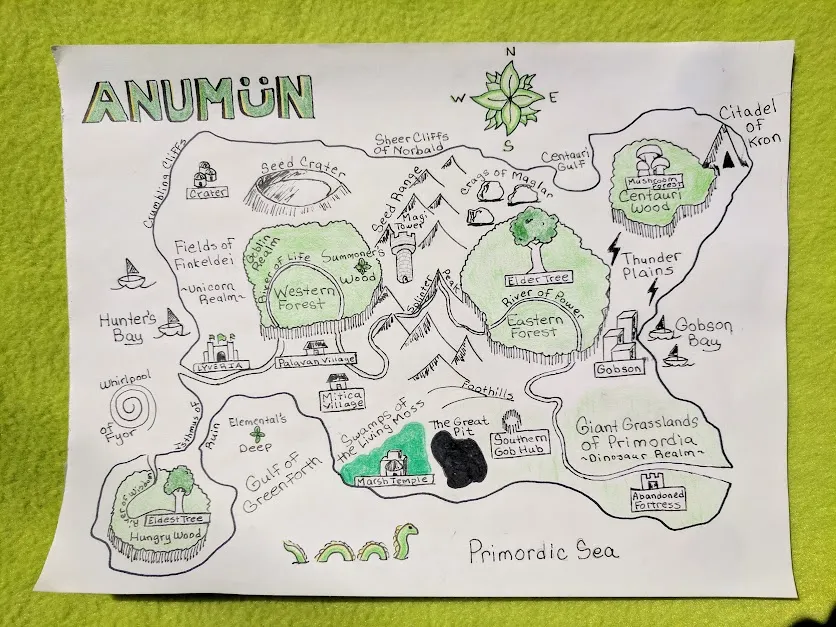 ANUMÜN
N
W E
S
Crumbling Cliffs
Sheer Cliffs
of Norbald
Centauri
Gulf
Citadel
of
Kron
Crater
Seed Crater
Seed Range
Magi
Tower
Crags of Maglar
Mushroom
Forest
Centauri
Wood
Fields of
Finkeldei
~Unicorn
Realm~
Goblin
Realm
River of Life
Summoner's
Wood
Western
Forest
Splinter
Peak
Elder Tree
River of Power
Eastern
Forest
Thunder
Plains
Hunter's
Bay
Gobson
Bay
Gobson
LYVERIA
Palavan Village
Mitica
Village
Foothills
Whirlpool
of Fyor
Isthmus of
Ruin
Elemental's
Deep
Gulf of
Greenforth
Swamps of
the Living Moss
Marsh Temple
The Great
Pit
Southern
Gob Hub
Giant Grasslands
of Primordia
~Dinosaur Realm~
Abandoned
Fortress
River of Wisdom
Eldest Tree
Hungry Wood
Primordic Sea